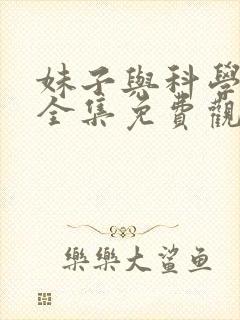 妹子與科學
全集免費觀
樂樂大鯊魚